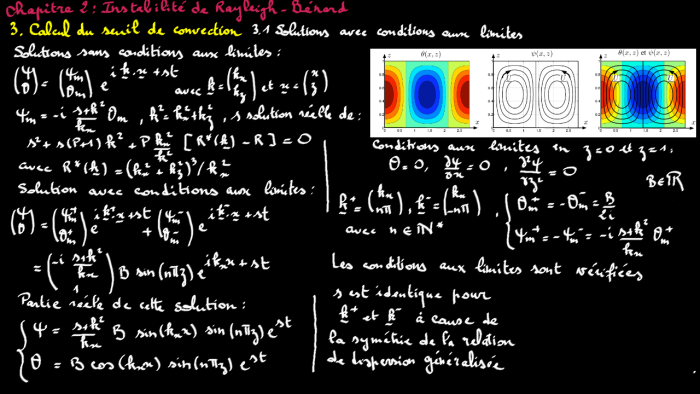 Chapitre 2 : Instabilité de Rayleigh - Bénard
3. Calcul du seuil de convection 3.1 Solutions avec conditions aux limites
Solutions sans conditions aux limites :
(ψ θ) = (ψm θm) e^{i k·x + st} avec k = (kx kz) et x = (x z)
ψm = -i (s+k²)/kx θm , k² = kx² + kz² , s solution réelle de :
s² + s(P+1) k² + P kx²/k² [R*(k) - R] = 0
avec R*(k) = (kx² + kz²)³/kx²
Solution avec conditions aux limites :
(ψ θ) = (ψm⁺ θm⁺) e^{i k⁺·x + st} + (ψm⁻ θm⁻) e^{i k⁻·x + st}
= (-i (s+k²)/kx 1) B sin(nπz) e^{i kx x + st}
Partie réelle de cette solution :
ψ = (s+k²)/kx B sin(kx x) sin(nπz) e^{st}
θ = B cos(kx x) sin(nπz) e^{st}
θ(x, z)
ψ(x, z)
θ(x, z) et ψ(x, z)
Conditions aux limites en z=0 et z=1 :
θ = 0, ∂ψ/∂x = 0 , ∂²ψ/∂z² = 0
B∈ℝ
k⁺ = (kx nπ) , k⁻ = (kx -nπ) ,
avec n ∈ ℕ*
θm⁺ = -θm⁻ = B/2i
ψm⁺ = -ψm⁻ = -i (s+k²)/kx θm⁺
Les conditions aux limites sont vérifiées
s est identique pour
k⁺ et k⁻ à cause de
la symétrie de la relation
de dispersion généralisée